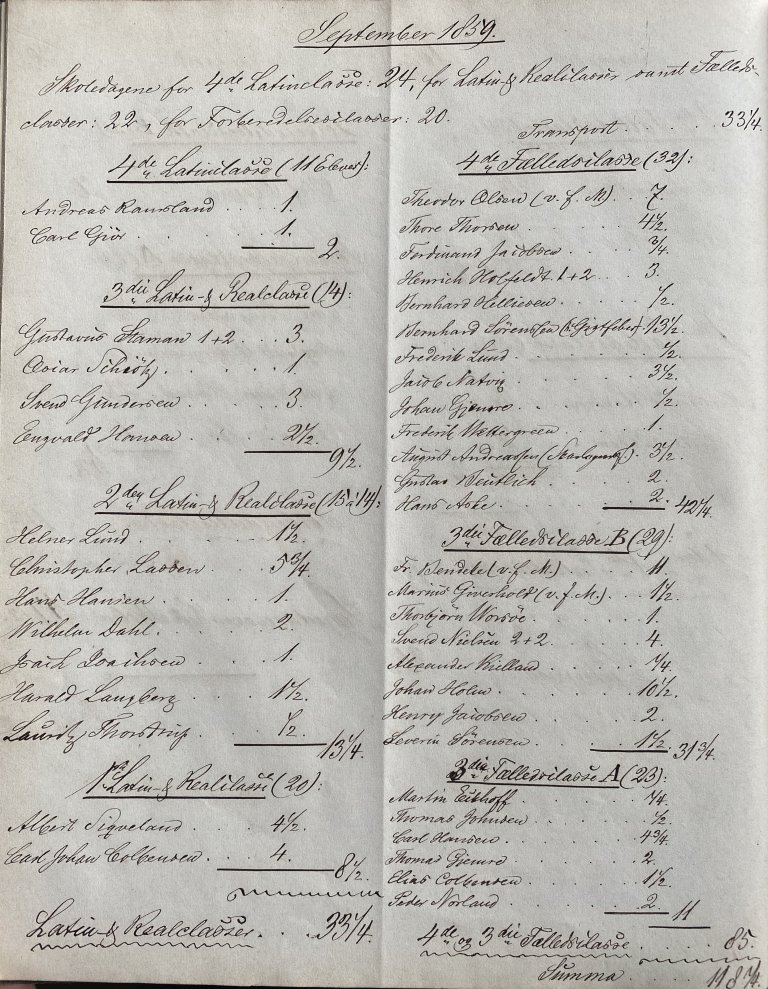 September 1859.
Skoledagene for 4de Latinclasse: 24, for Latin- & Realclasser samt Fælleds-
classer: 22, for Forberedelsesclasser: 20.
4de Latinclasse (11 Elever):
Andreas Ramsland . . . 1.
Carl Giör . . . 1.
2.
3die Latin- & Realclasse (14):
Gustavus Flaman 1+2 . . . 3.
Oscar Schiötz . . . 1.
Svend Gundersen . . . 3.
Engvald Hansen . . . 2½.
9½.
2den Latin- & Realclasse (15 à 14):
Helner Lund . . . 1½.
Christopher Lassen . . . 5¾.
Hans Hansen . . . 1.
Wilhelm Dahl . . . 2.
Isach Isachsen . . . 1.
Harald Langberg . . . 1½.
Lauritz Thorstrup . . . ½.
13¼.
1ste Latin- & Realclasse (20):
Albert Sigveland . . . 4½.
Carl Johan Colbensen . . . 4.
8½.
Latin- & Realclasser . . . 33¼.
Transport . . . 33¼.
4de Fælledsclasse (32):
Theodor Olsen (v. f. M) . . . 7.
Thore Thorsen . . . 4½.
Ferdinand Jacobsen . . . ¾.
Henrich Holfeldt 1+2 . . . 3.
Bernhard Helliesen . . . ½.
Bernhard Sörensen (Gigtfeber) 13½.
Frederik Lund . . . ½.
Jacob Natvig . . . 3½.
Johan Gjemre . . . ½.
Frederik Wettergreen . . . 1.
August Andreassen . . . 3½.
Gustav Beutlich . . . 2.
Hans Aske . . . 2.
42¼.
3die Fælledsclasse B (29):
Fr. Bendeke (v. f. M.) . . . 11
Marius Giverhold (v. f. M.) . . . 1½.
Thorbjörn Worsöe . . . 1.
Svend Nielsen 2+2 . . . 4.
Alexander Kielland . . . ¼.
Johan Holm . . . 10½.
Henry Jacobsen . . . 2.
Severin Sörensen . . . 1½.
31¾.
3die Fælledsclasse A (23):
Martin Eckhoff . . . ¼.
Thomas Johnsen . . . ½.
Carl Hansen . . . 4¾.
Thomas Gjemre . . . 2.
Elias Colbensen . . . 1½.
Peder Norland . . . 2.
11
4de og 3die Fælledsclasse . . . 85.
Summa . . . 118¼.